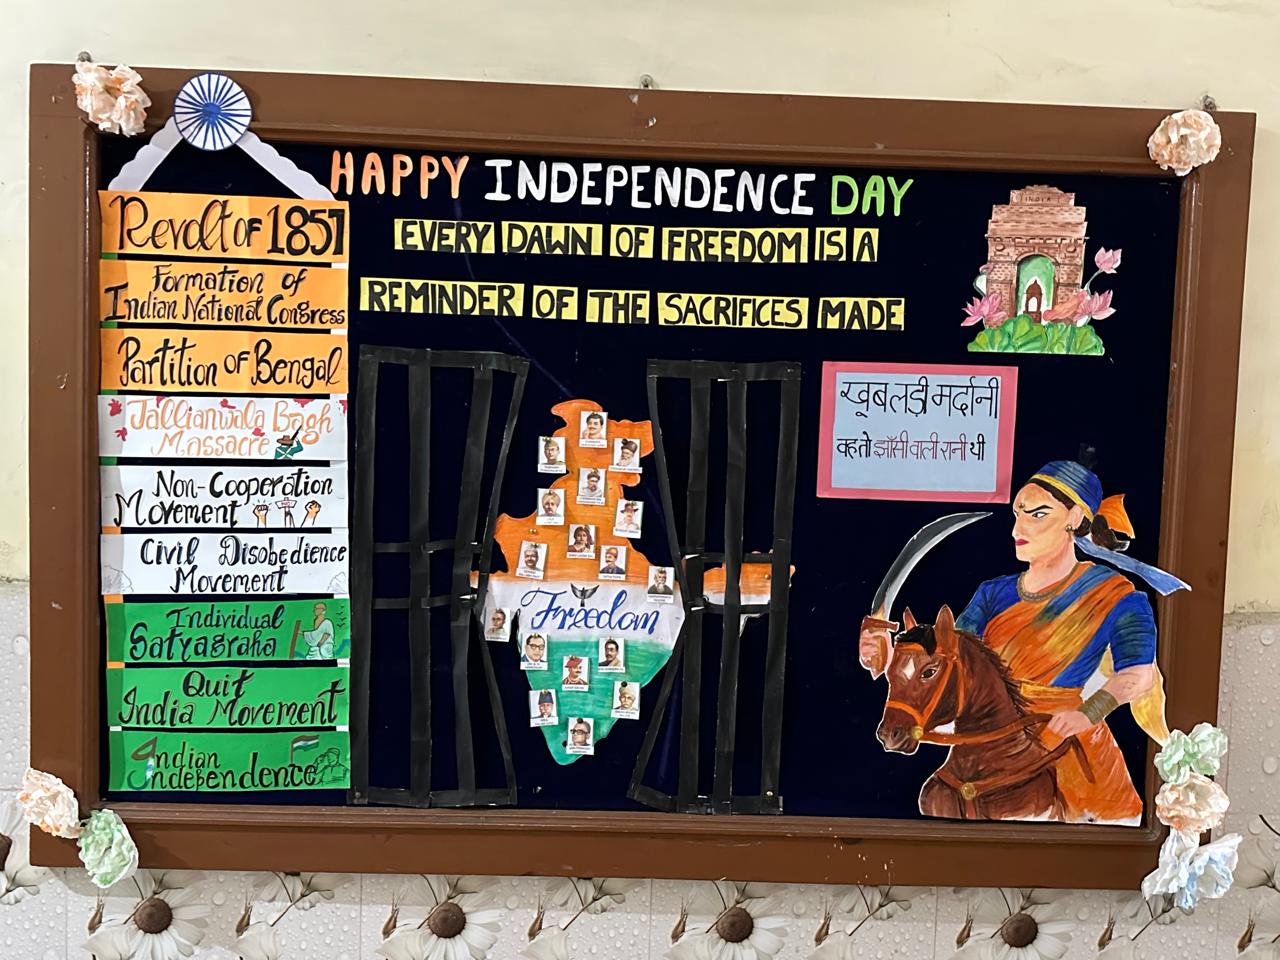 HAPPY INDEPENDENCE DAY
EVERY DAWN OF FREEDOM IS A
REMINDER OF THE SACRIFICES MADE
Revolt OF 1857
Formation of
Indian National Congress
Partition of Bengal
Jallianwala Bagh
Massacre
Non-Cooperation
Movement
Civil Disobedience
Movement
Individual
Satyagraha
Quit
India Movement
Indian
Independence
Freedom
INDIA
खूब लड़ी मर्दानी
वह तो झाँसी वाली रानी थी